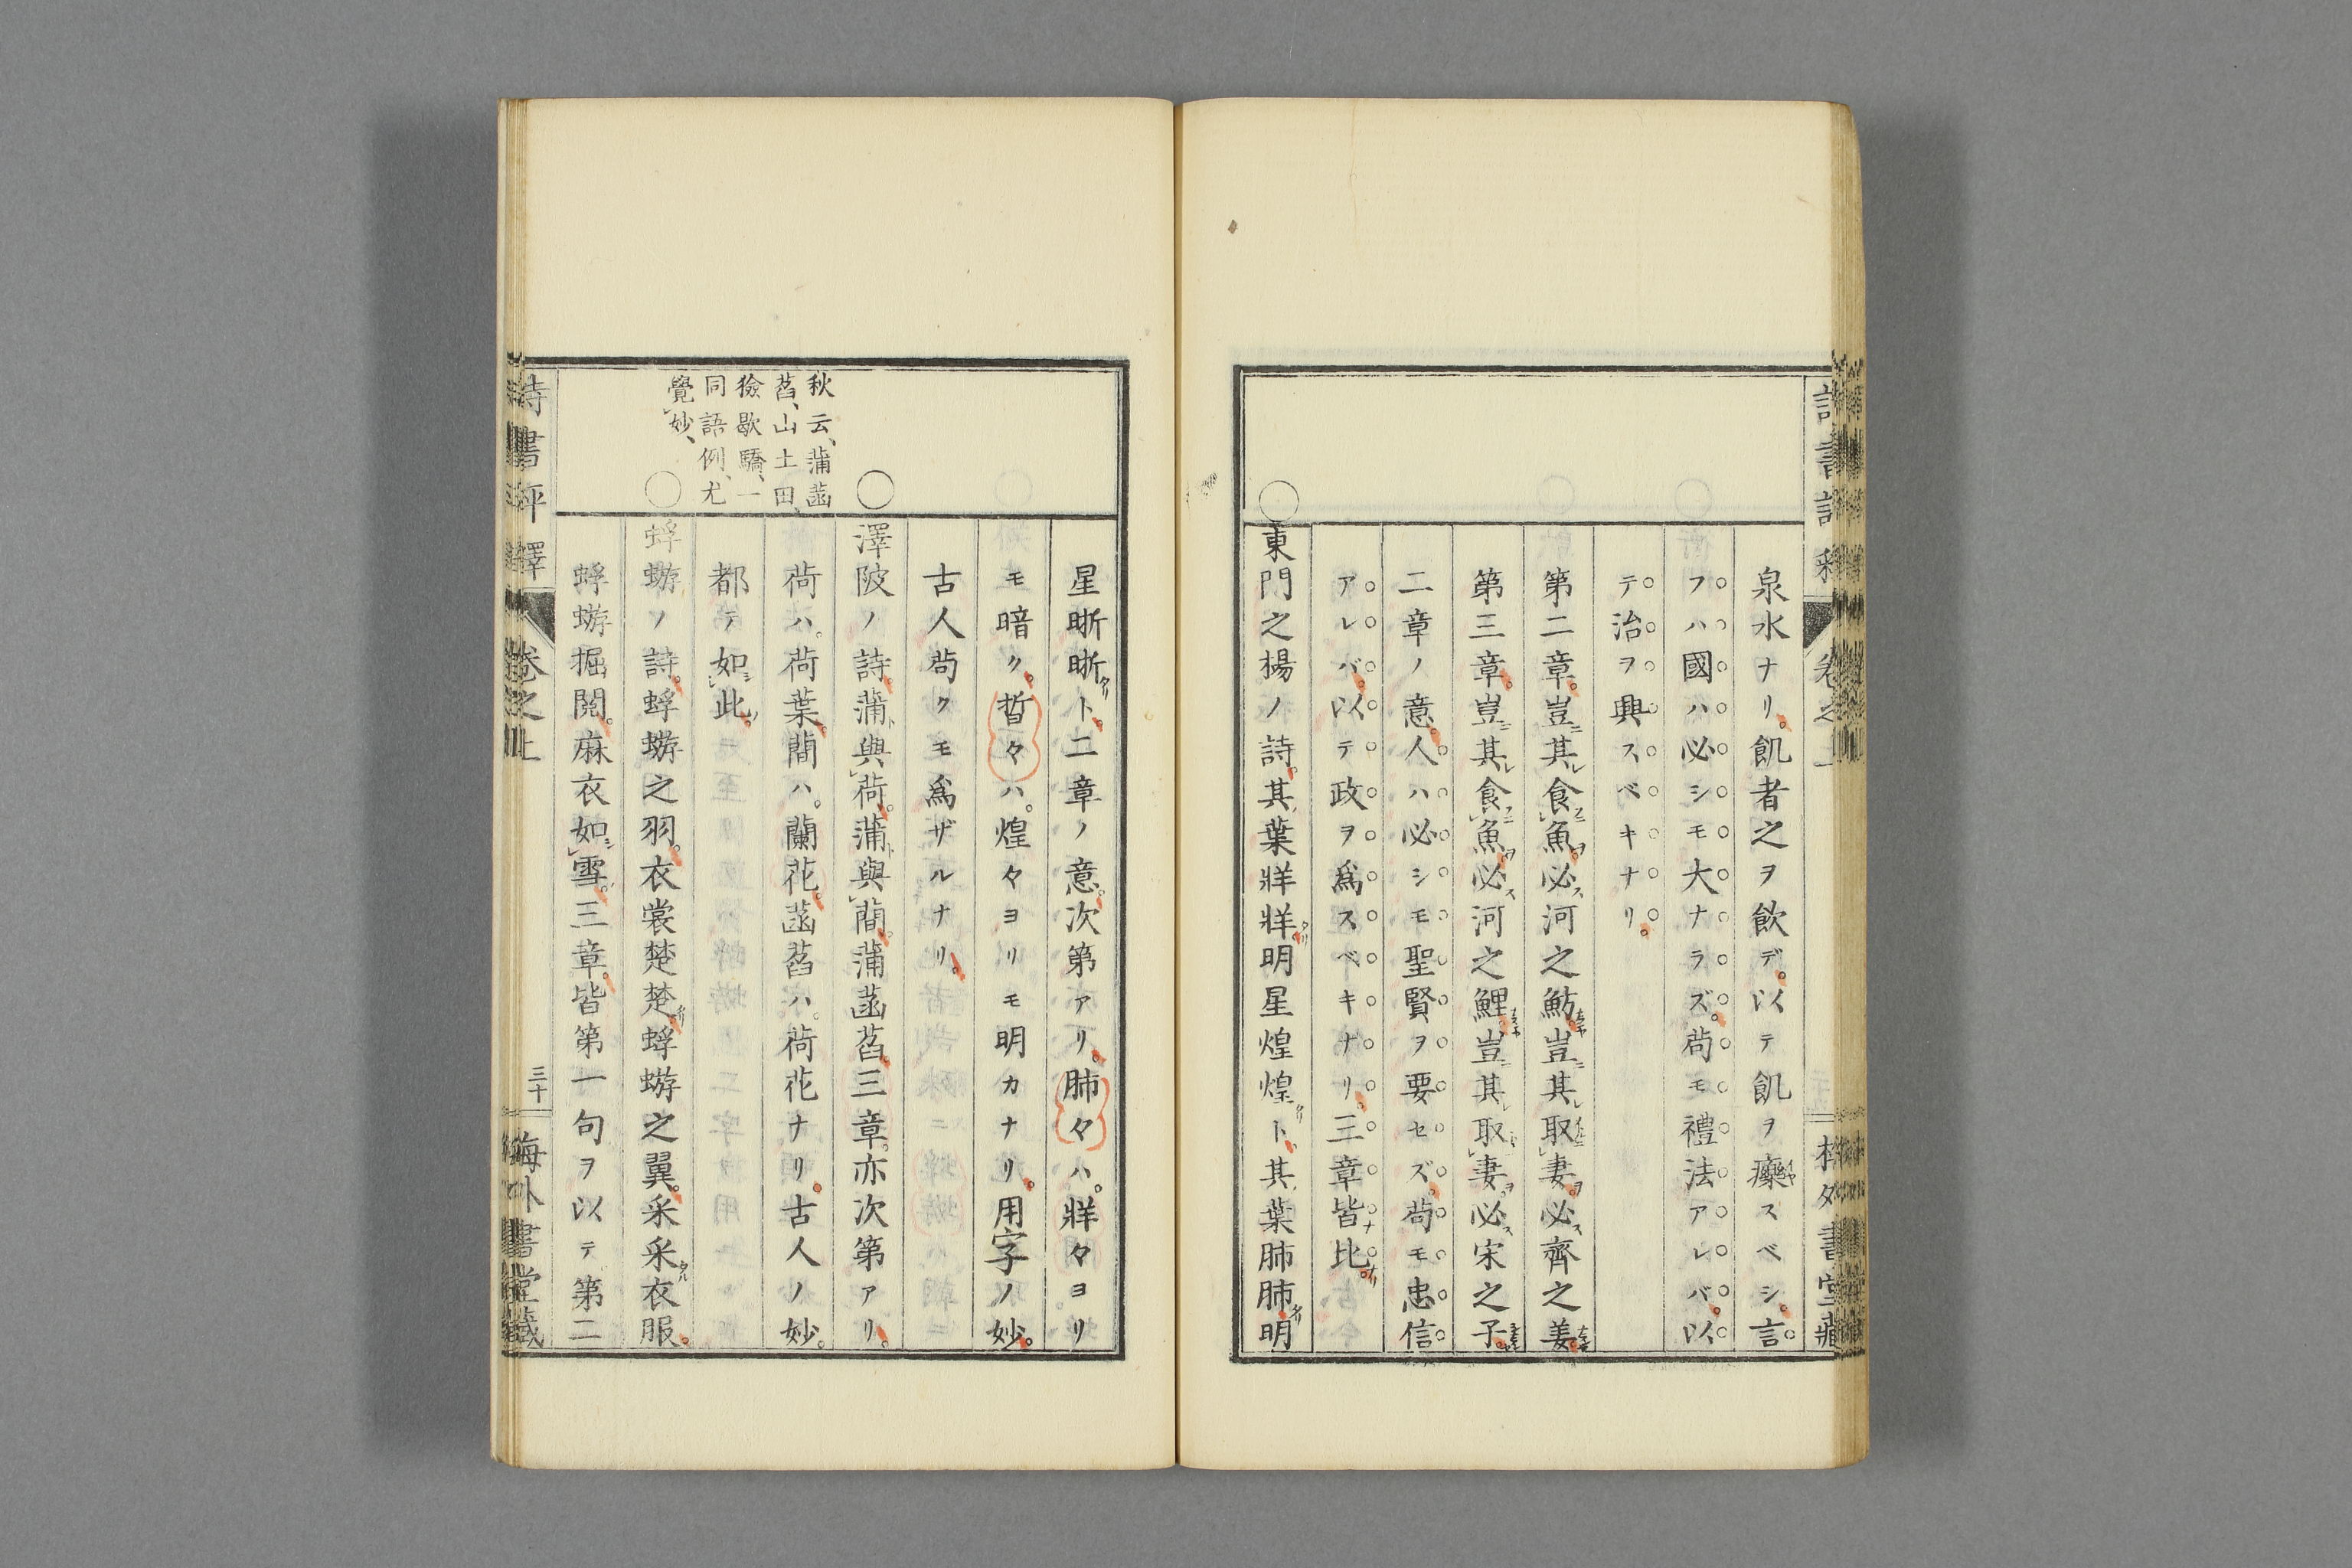 泉水ナリ。飢者之ヲ飲デ。以テ飢ヲ癳スベシ。言
フハ國ハ必シモ大ナラズ。茍モ禮法アレバ。以
テ治ヲ興スベキナリ。
第二章。豈其食魚。必河之魴。豈其取妻。必齊之姜。
第三章。豈其食魚。必河之鯉。豈其取妻。必宋之子。
二章ノ意。人ハ必シモ聖賢ヲ要セズ。茍モ忠信
アレバ。以テ政ヲ爲スベキナリ。三章皆比。
東門之楊ノ詩。其葉牂牂。明星煌煌ト。其葉肺肺。明
星晣晣ト。二章ノ意。次第アリ。肺々ハ。牂々ヨリ
モ暗ク。晢々ハ。煌々ヨリモ明カナリ。用字ノ妙。
古人茍クモ爲ザルナリ。
澤陂ノ詩。蒲與荷。蒲與蕑。蒲菡萏。三章。亦次第アリ。
荷ハ。荷葉。蕑ハ。蘭花。菡萏ハ。荷花ナリ。古人ノ妙。
都テ如此。
蜉蝣ノ詩。蜉蝣之羽。衣裳楚楚。蜉蝣之翼。采采衣服。
蜉蝣掘閲。麻衣如雪。三章。皆第一句ヲ以テ第二
秋云、蒲菡
萏、山土田、
獫歇驕、一
同語例、尤
覺妙、
詩書評釋
卷之上
三十
晦外書堂藏